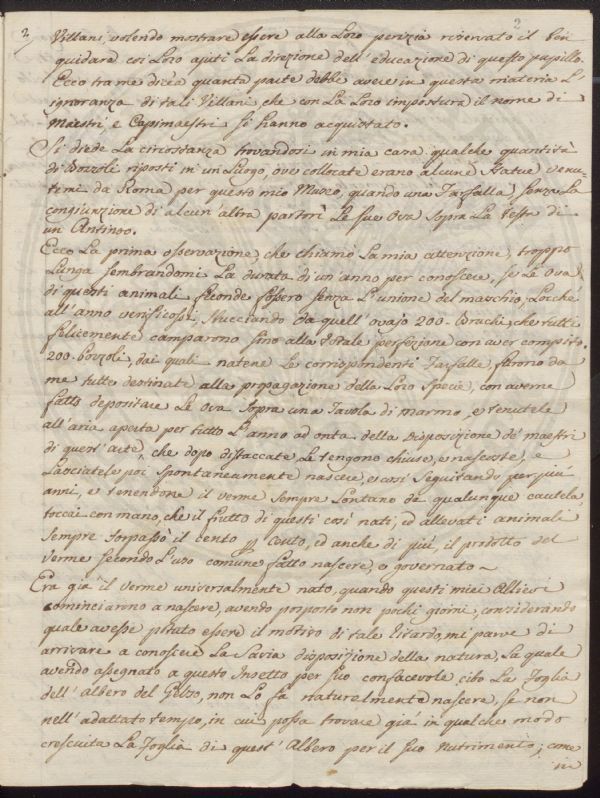 3/ 2
Villani, volendo mostrare essere alla Loro perizia riservato il ben
guidare coi Loro ajuti La direzione dell'educazione di questo pupillo.
Ecco tra me dicea quanta parte debbe avere in questa materia L'
ignoranza di tali Villani, che con La Loro impostura il nome di
Maestri, e Capimaestri si hanno acquistato.
Si diede La circostanza trovandosi in mia casa qualche quantità
di Bozzoli riposti in un Luogo, ove collocate erano alcune Statue venu-
temi da Roma per questo mio Museo, quando una Farfalla senza La
congiunzione di alcun'altra partorì Le sue Ova sopra La testa di
un Antinoo.
Ecco La prima osservazione, che chiamò La mia attenzione, troppo
Lunga sembrandomi La durata di un'anno per conoscere, se Le Ova
di questi animali feconde fossero senza L'unione del maschio, Locché
all'anno verificossi, sbucciando da quell'ovajo 200. Bruchi, che tutti
felicemente camparono sino alla totale perfezione con aver compito
200. Bozzoli, dai quali natene Le corrispondenti Farfalle, furono da
me tutte destinate alla propagazione della Loro Specie, con averne
fatto depositare Le Ova sopra una Tavola di marmo, e tenutele
all'aria aperta per tutto L'anno ad onta della disposizione de' maestri
di quest'arte, che dopo distaccate, Le tengono chiuse, e nascoste, e
Lasciatele poi spontaneamente nascere, e così seguitando per più
anni, e tenendone il verme sempre Lontano da qualunque cautela,
toccai con mano, che il frutto di questi così nati, ed allevati animali
sempre sorpassò il cento per cento, ed anche di più, il prodotto del
verme secondo L'uso comune fatto nascere, e governato.
Era già il verme universalmente nato, quando questi miei Allievi
cominciarono a nascere, avendo posposto non pochi giorni, considerando
quale avesse potuto essere il motivo di tale ritardo, mi parve di
arrivare a conoscere La Savia disposizione della natura, La quale
avendo assegnato a questo Insetto per suo confacevole cibo La Foglia
dell'albero del Gelso, non Lo fa naturalmente nascere, se non
nell'adattato tempo, in cui possa trovare già in qualche modo
cresciuta La Foglia di quest'Albero per il suo nutrimento; come
in